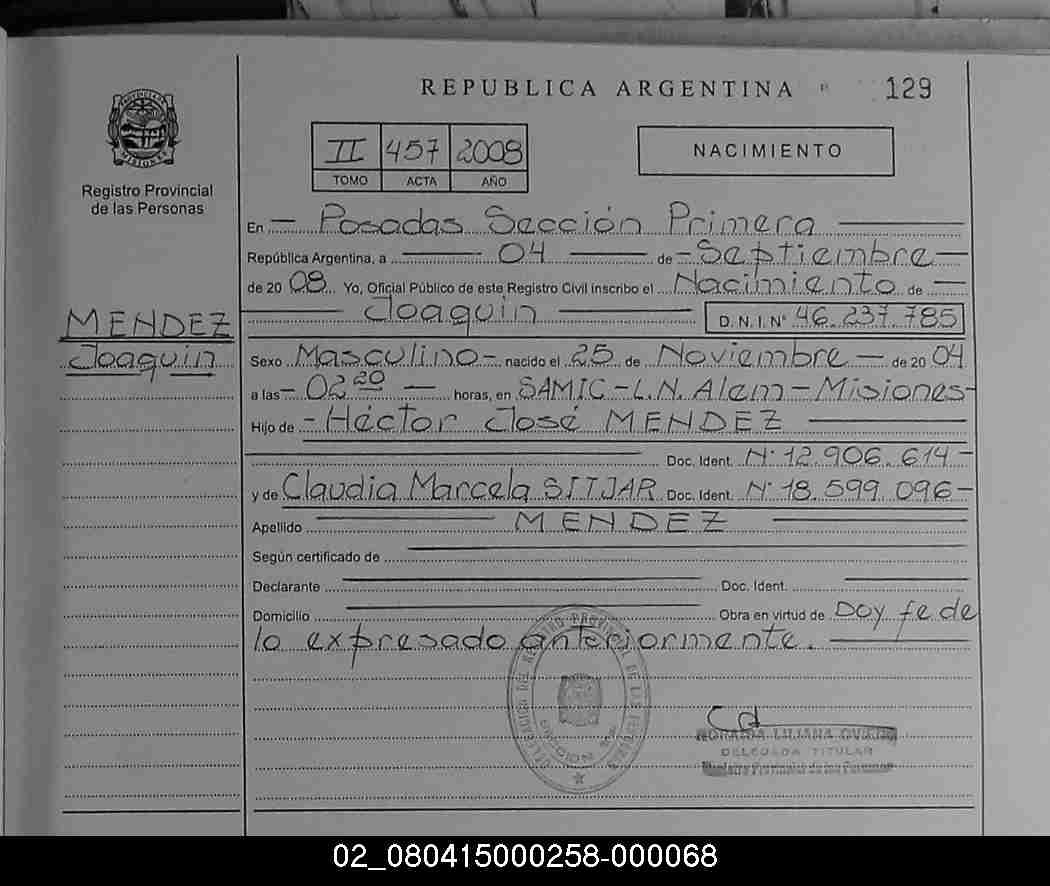 REPUBLICA ARGENTINA 129
PROVINCIA DE
MISIONES
Registro Provincial
de las Personas
II 457 2008
TOMO ACTA AÑO
NACIMIENTO
En Posadas Sección Primera
República Argentina, a 04 de Septiembre
de 2008 Yo, Oficial Público de este Registro Civil inscribo el Nacimiento de
Joaquin D.N.I.N° 46.237.785
MENDEZ
Joaquin
Sexo Masculino nacido el 25 de Noviembre de 2004
a las 02 20 horas, en SAMIC-L.N. Alem-Misiones
Hijo de Héctor José MENDEZ
Doc. Ident. N° 12.906.614
y de Claudia Marcela SITJAR Doc. Ident. N° 18.599.096
Apellido MENDEZ
Según certificado de
Declarante Doc. Ident.
Domicilio Obra en virtud de Doy fe de
lo expresado anteriormente.
DELEGACION DEL REGISTRO PROVINCIAL DE LAS PERSONAS
SECCION
LILIANA
DELEGADA TITULAR
Registro Provincial de las Personas
02_080415000258-000068